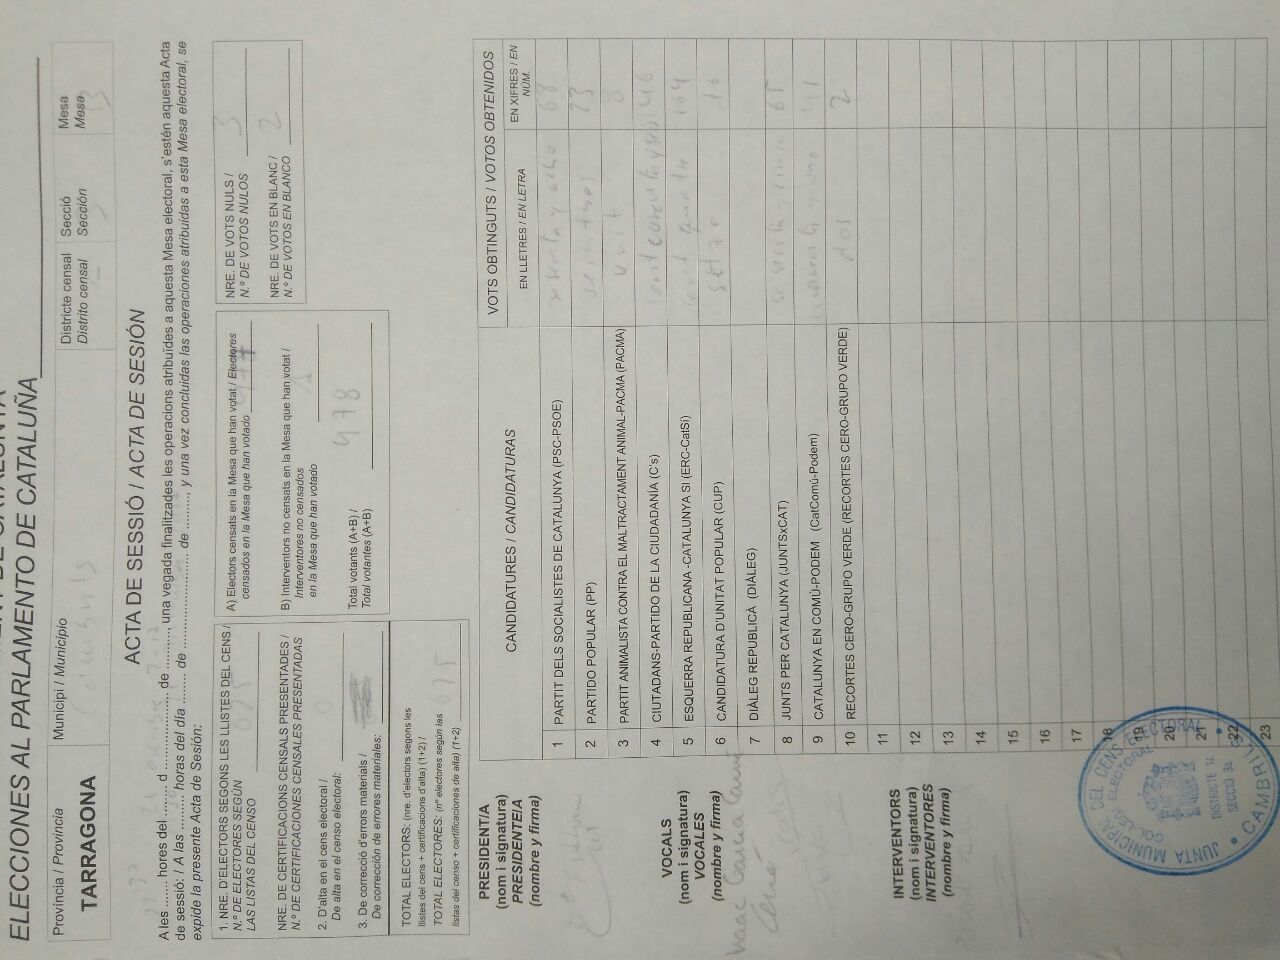 ELECCIONES AL PARLAMENTO DE CATALUÑA
Província / Provincia
TARRAGONA
Municipi / Municipio
Cambrils
Districte censal
Distrito censal
Secció
Sección
Mesa
Mesa
ACTA DE SESSIÓ / ACTA DE SESIÓN
A les ......... hores del ......... d ......................... de ..........., una vegada finalitzades les operacions atribuïdes a aquesta Mesa electoral, s'estén aquesta Acta
de sessió: / A las ......... horas del día ......... de ......................... de .........., y una vez concluidas las operaciones atribuidas a esta Mesa electoral, se
expide la presente Acta de Sesión:
1. NRE. D'ELECTORS SEGONS LES LLISTES DEL CENS /
N.º DE ELECTORES SEGÚN
LAS LISTAS DEL CENSO
NRE. DE CERTIFICACIONS CENSALS PRESENTADES /
N.º DE CERTIFICACIONES CENSALES PRESENTADAS
2. D'alta en el cens electoral /
De alta en el censo electoral:
0
3. De correcció d'errors materials /
De corrección de errores materiales:
TOTAL ELECTORS: (nre. d'electors segons les
llistes del cens + certificacions d'alta) (1+2) /
TOTAL ELECTORES: (nº electores según las
listas del censo + certificaciones de alta) (1+2)
A) Electors censats en la Mesa que han votat / Electores
censados en la Mesa que han votado
B) Interventors no censats en la Mesa que han votat /
Interventores no censados
en la Mesa que han votado
1
Total votants (A+B) /
Total votantes (A+B)
478
NRE. DE VOTS NULS /
N.º DE VOTOS NULOS
3
NRE. DE VOTS EN BLANC /
N.º DE VOTOS EN BLANCO
2
CANDIDATURES / CANDIDATURAS
VOTS OBTINGUTS / VOTOS OBTENIDOS
EN LLETRES / EN LETRA
EN XIFRES / EN NÚM.
1 PARTIT DELS SOCIALISTES DE CATALUNYA (PSC-PSOE) sesenta y ocho 68
2 PARTIDO POPULAR (PP) 23
3 PARTIT ANIMALISTA CONTRA EL MALTRACTAMENT ANIMAL-PACMA (PACMA) vuit 8
4 CIUTADANS-PARTIDO DE LA CIUDADANÍA (C's) 146
5 ESQUERRA REPUBLICANA -CATALUNYA SI (ERC-CatSí) cent quatre 104
6 CANDIDATURA D'UNITAT POPULAR (CUP) setze 16
7 DIÀLEG REPUBLICÀ (DIÀLEG)
8 JUNTS PER CATALUNYA (JUNTSxCAT) sesenta cinco 65
9 CATALUNYA EN COMÚ-PODEM (CatComú-Podem) cuarenta y uno 41
10 RECORTES CERO-GRUPO VERDE (RECORTES CERO-GRUPO VERDE) dos 2
11
12
13
14
15
16
17
18
19
20
21
22
23
PRESIDENT/A
(nom i signatura)
PRESIDENTE/A
(nombre y firma)
VOCALS
(nom i signatura)
VOCALES
(nombre y firma)
INTERVENTORS
(nom i signatura)
INTERVENTORES
(nombre y firma)
JUNTA MUNICIPAL DEL CENS ELECTORAL
• CAMBRILS •
COL·LEGI ELECTORAL
DISTRICTE 1r.
SECCIÓ 3a.